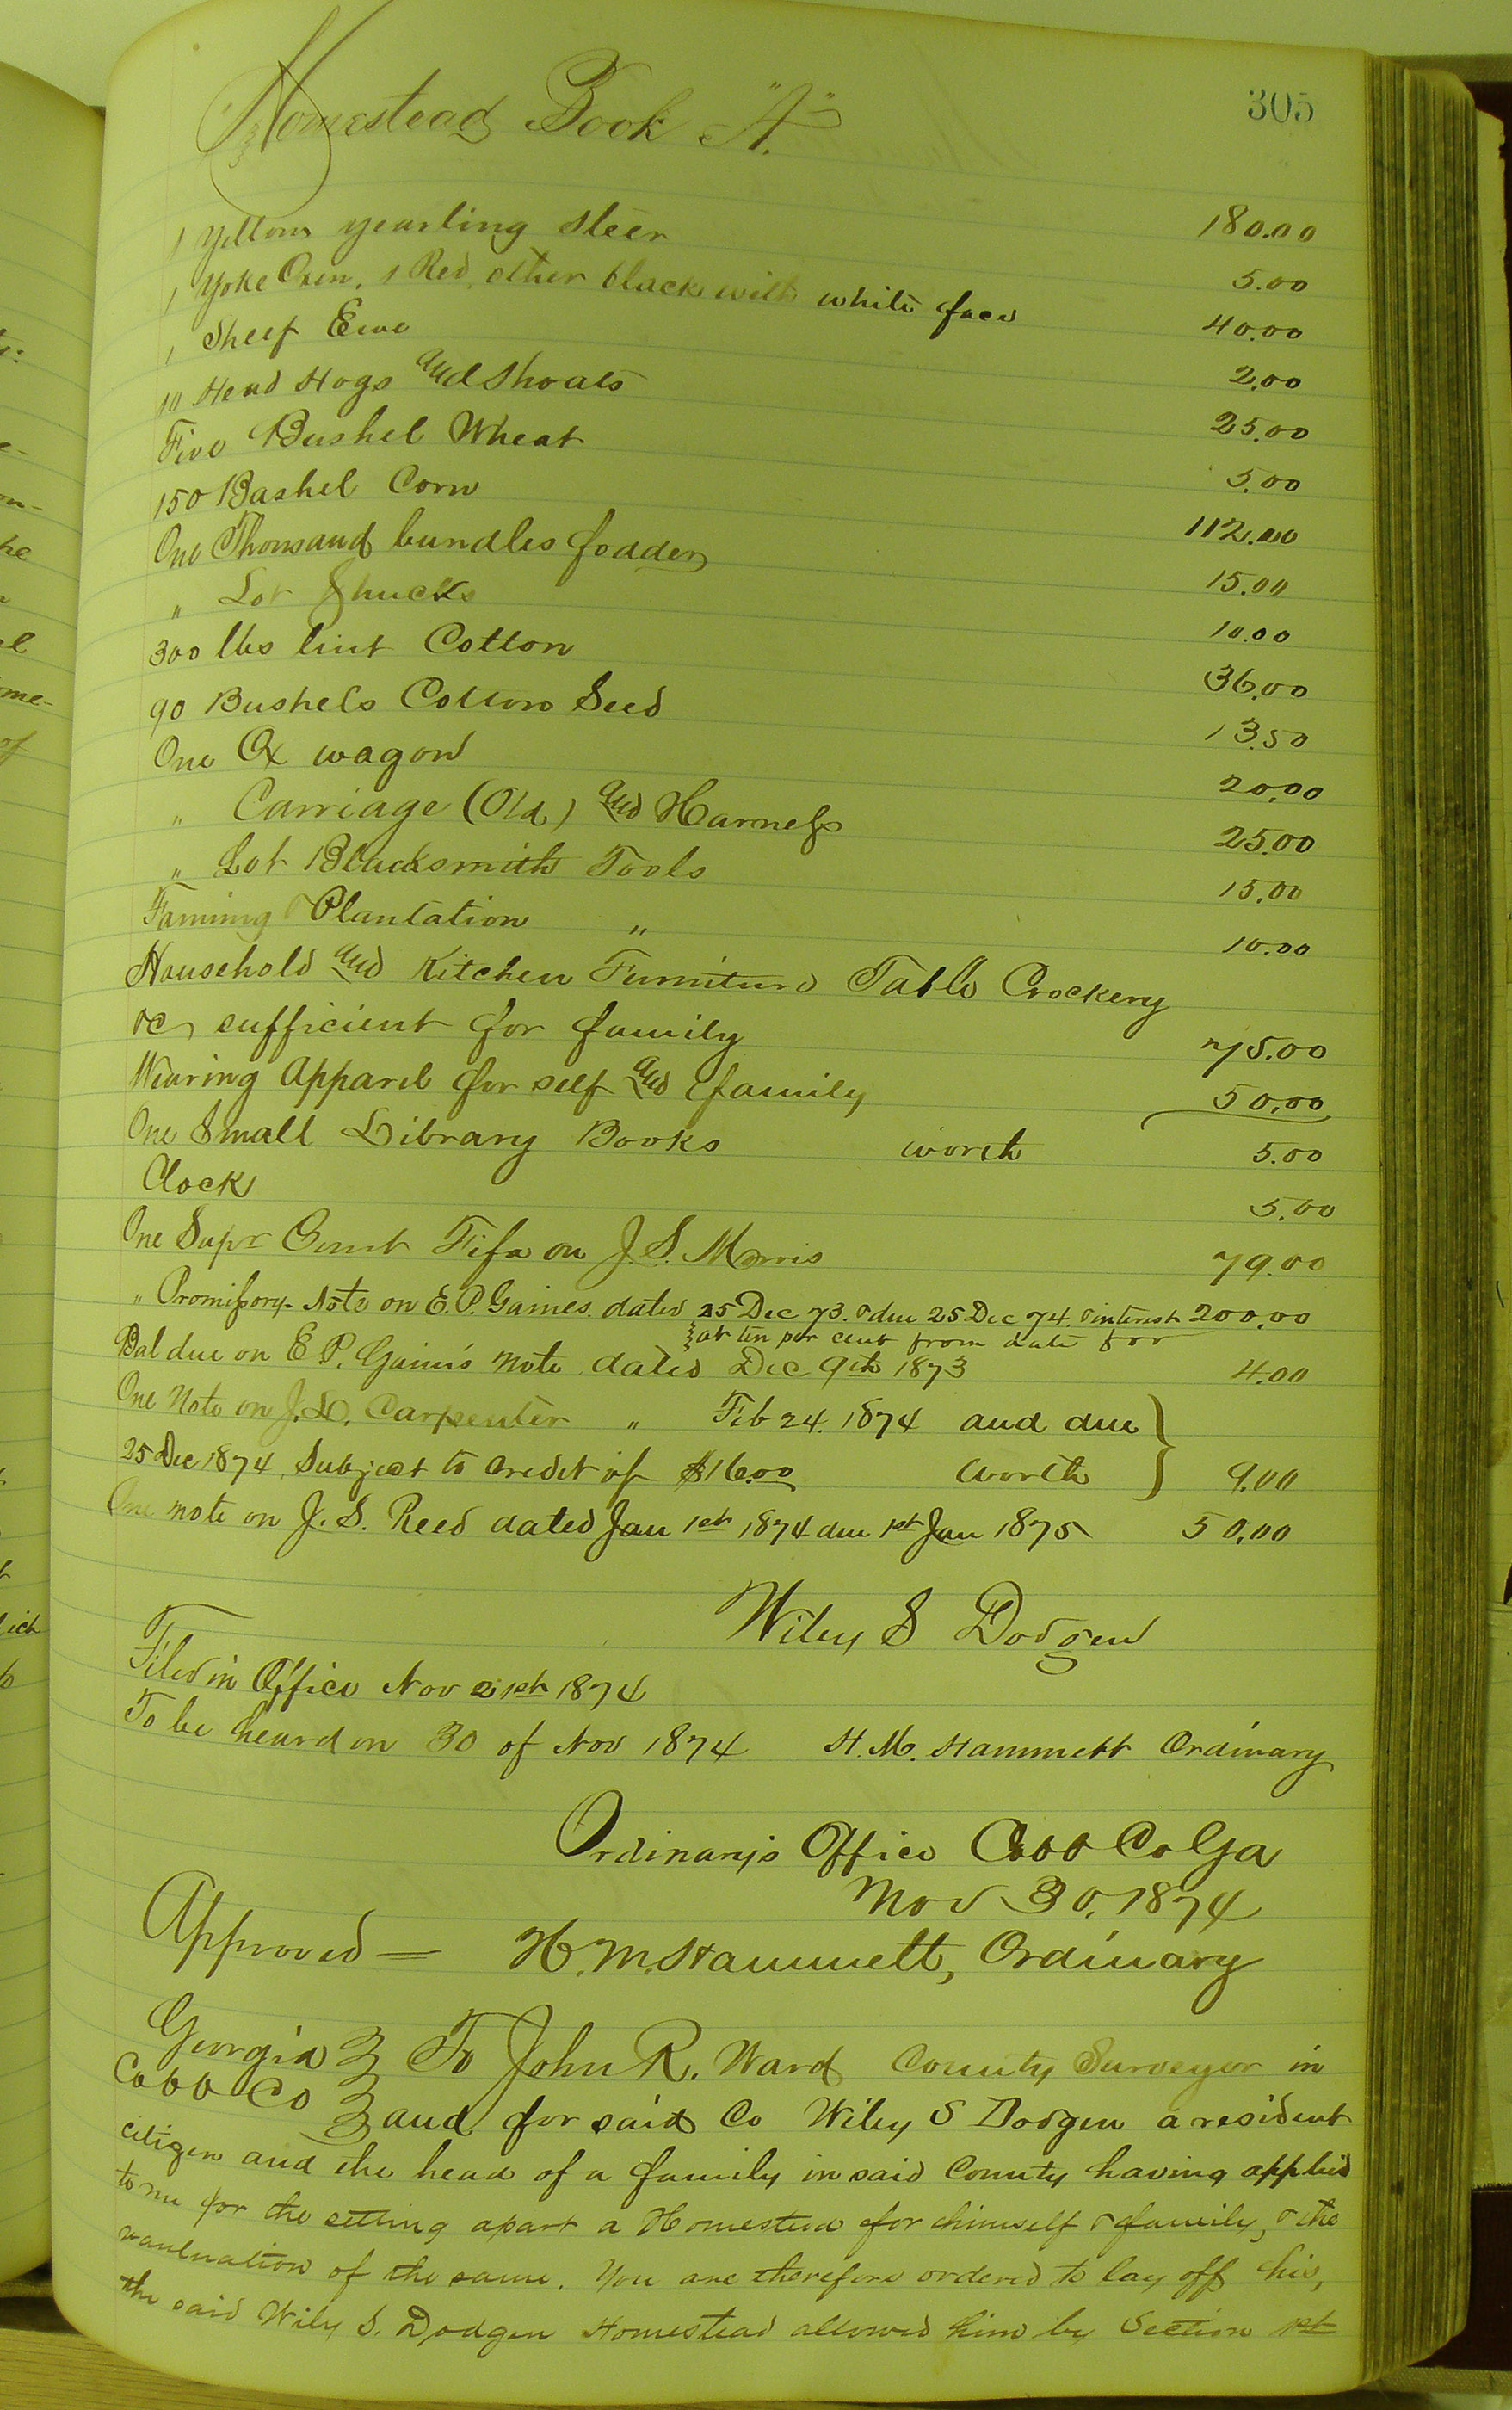 Homestead Book "A." 305
180.00
1 Yellow yearling steer 5.00
1 Yoke Oxen, 1 Red, other black with white face 40.00
1 Sheep Ewe 2.00
10 Head Hogs and Shoats 25.00
Five Bushel Wheat 5.00
150 Bushel Corn 112.00
One Thousand bundles fodder 15.00
" Lot Shucks 10.00
300 lbs lint Cotton 36.00
90 Bushels Cotton Seed 13.50
One Ox wagon 20.00
" Carriage (Old) and Harness 25.00
" Lot Blacksmith Tools 15.00
Farming & Plantation " 10.00
Household and Kitchen Furniture Table Crockery
&c sufficient for family 75.00
Wearing Apparel for self and family 50.00
One Small Library Books worth 5.00
Clock 5.00
One Supr Court Fifa on J. S. Morris 79.00
" Promissory Note on E. P. Gaines dated 25 Dec 73. & due 25 Dec 74. & interest 200.00
at ten per cent from date for
Bal due on E. P. Gaines note dated Dec 9th 1873 4.00
One Note on J. D. Carpenter " Feb 24. 1874 and due
25 Dec 1874, Subject to credit of $16.00 worth 9.00
One note on J. S. Reed dated Jan 1st 1874 due 1st Jan 1875 50.00
Wiley S Dodgen
Filed in Office Nov 21st 1874
To be heard on 30 of Nov 1874 H. M. Hammett Ordinary
Ordinary's Office Cobb Co Ga
Nov 30, 1874
Approved — H. M. Hammett, Ordinary
Georgia } To John R. Ward County Surveyor in
Cobb Co } and for said Co Wiley S Dodgen a resident
citizen and the head of a family in said County having applied
to me for the setting apart a Homestead for himself & family, & the
vauluation of the same. You are therefore ordered to lay off his,
the said Wily S. Dodgen Homestead allowed him by Section 1st